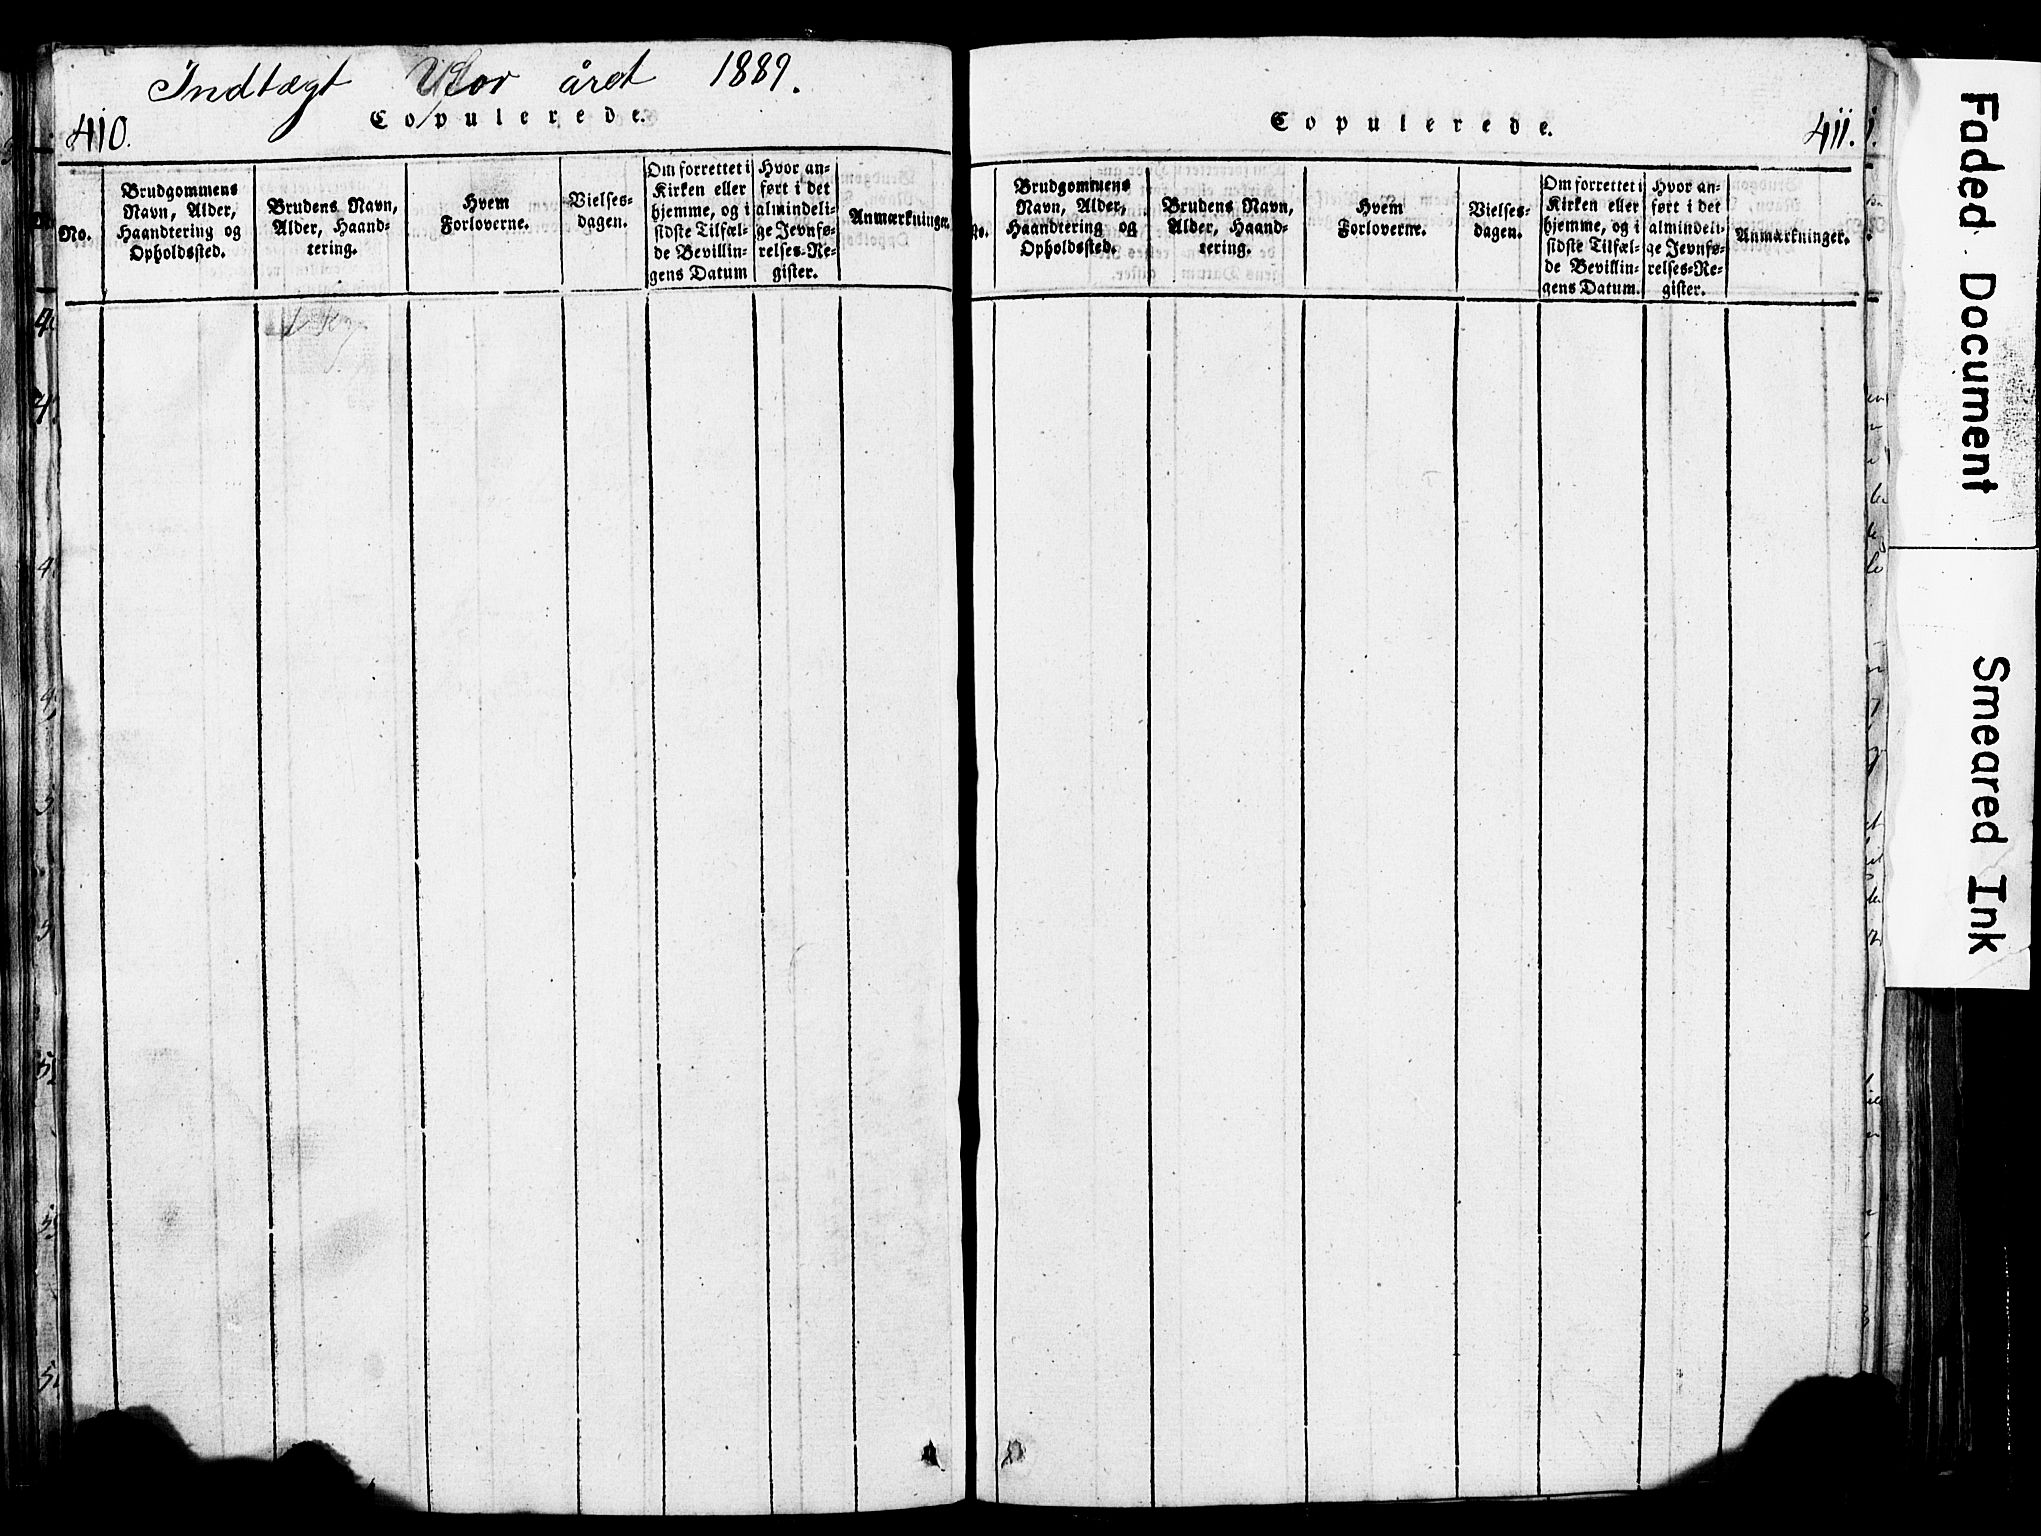 Indtægt for året 1889.
410.
Copulerede.
No.
Brudgommens
Navn, Alder,
Haandtering og
Opholdssted.
Brudens Navn,
Alder, Haand-
tering.
Hvem
Forloverne.
Vielses-
dagen.
Om forrettet i
Kirken eller
hjemme, og i
sidste Tilfæl-
de Bevillin-
gens Datum
Hvor an-
ført i det
almindeli-
ge Jevnfø-
relses-Re-
gister.
Anmærkninger.
Copulerede.
411.
No.
Brudgommens
Navn, Alder,
Haandtering og
Opholdssted.
Brudens Navn,
Alder, Haand-
tering.
Hvem
Forloverne.
Vielses-
dagen.
Om forrettet i
Kirken eller
hjemme, og i
sidste Tilfæl-
de Bevillin-
gens Datum.
Hvor an-
ført i det
almindeli-
ge Jevnfø-
relses-Re-
gister.
Anmærkninger.
Faded Document
Smeared Ink